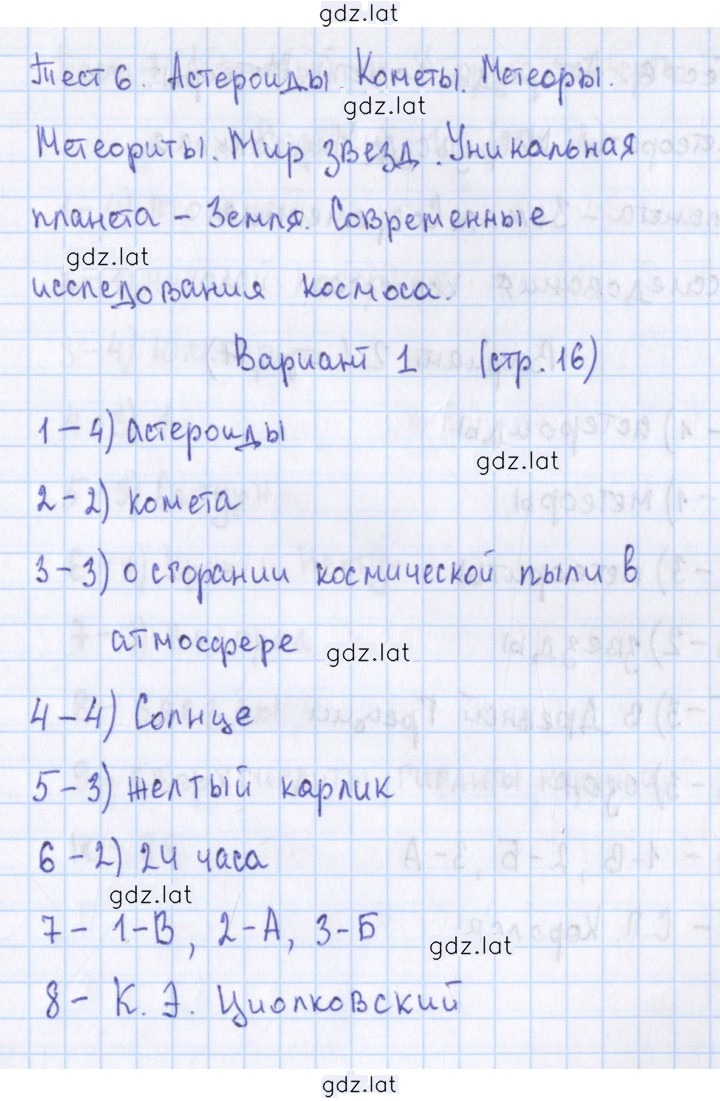 gdz.lat
Тест 6. Астероиды. Кометы. Метеоры.
gdz.lat
Метеориты. Мир звезд. Уникальная
планета – Земля. Современные
gdz.lat
исследования космоса.
Вариант 1 (стр. 16)
1 – 4) астероиды
gdz.lat
2 – 2) комета
3 – 3) о сгорании космической пыли в
атмосфере
gdz.lat
4 – 4) Солнце
5 – 3) желтый карлик
6 – 2) 24 часа
gdz.lat
7 – 1-В, 2-А, 3-Б
gdz.lat
8 – К. Э. Циолковский
gdz.lat